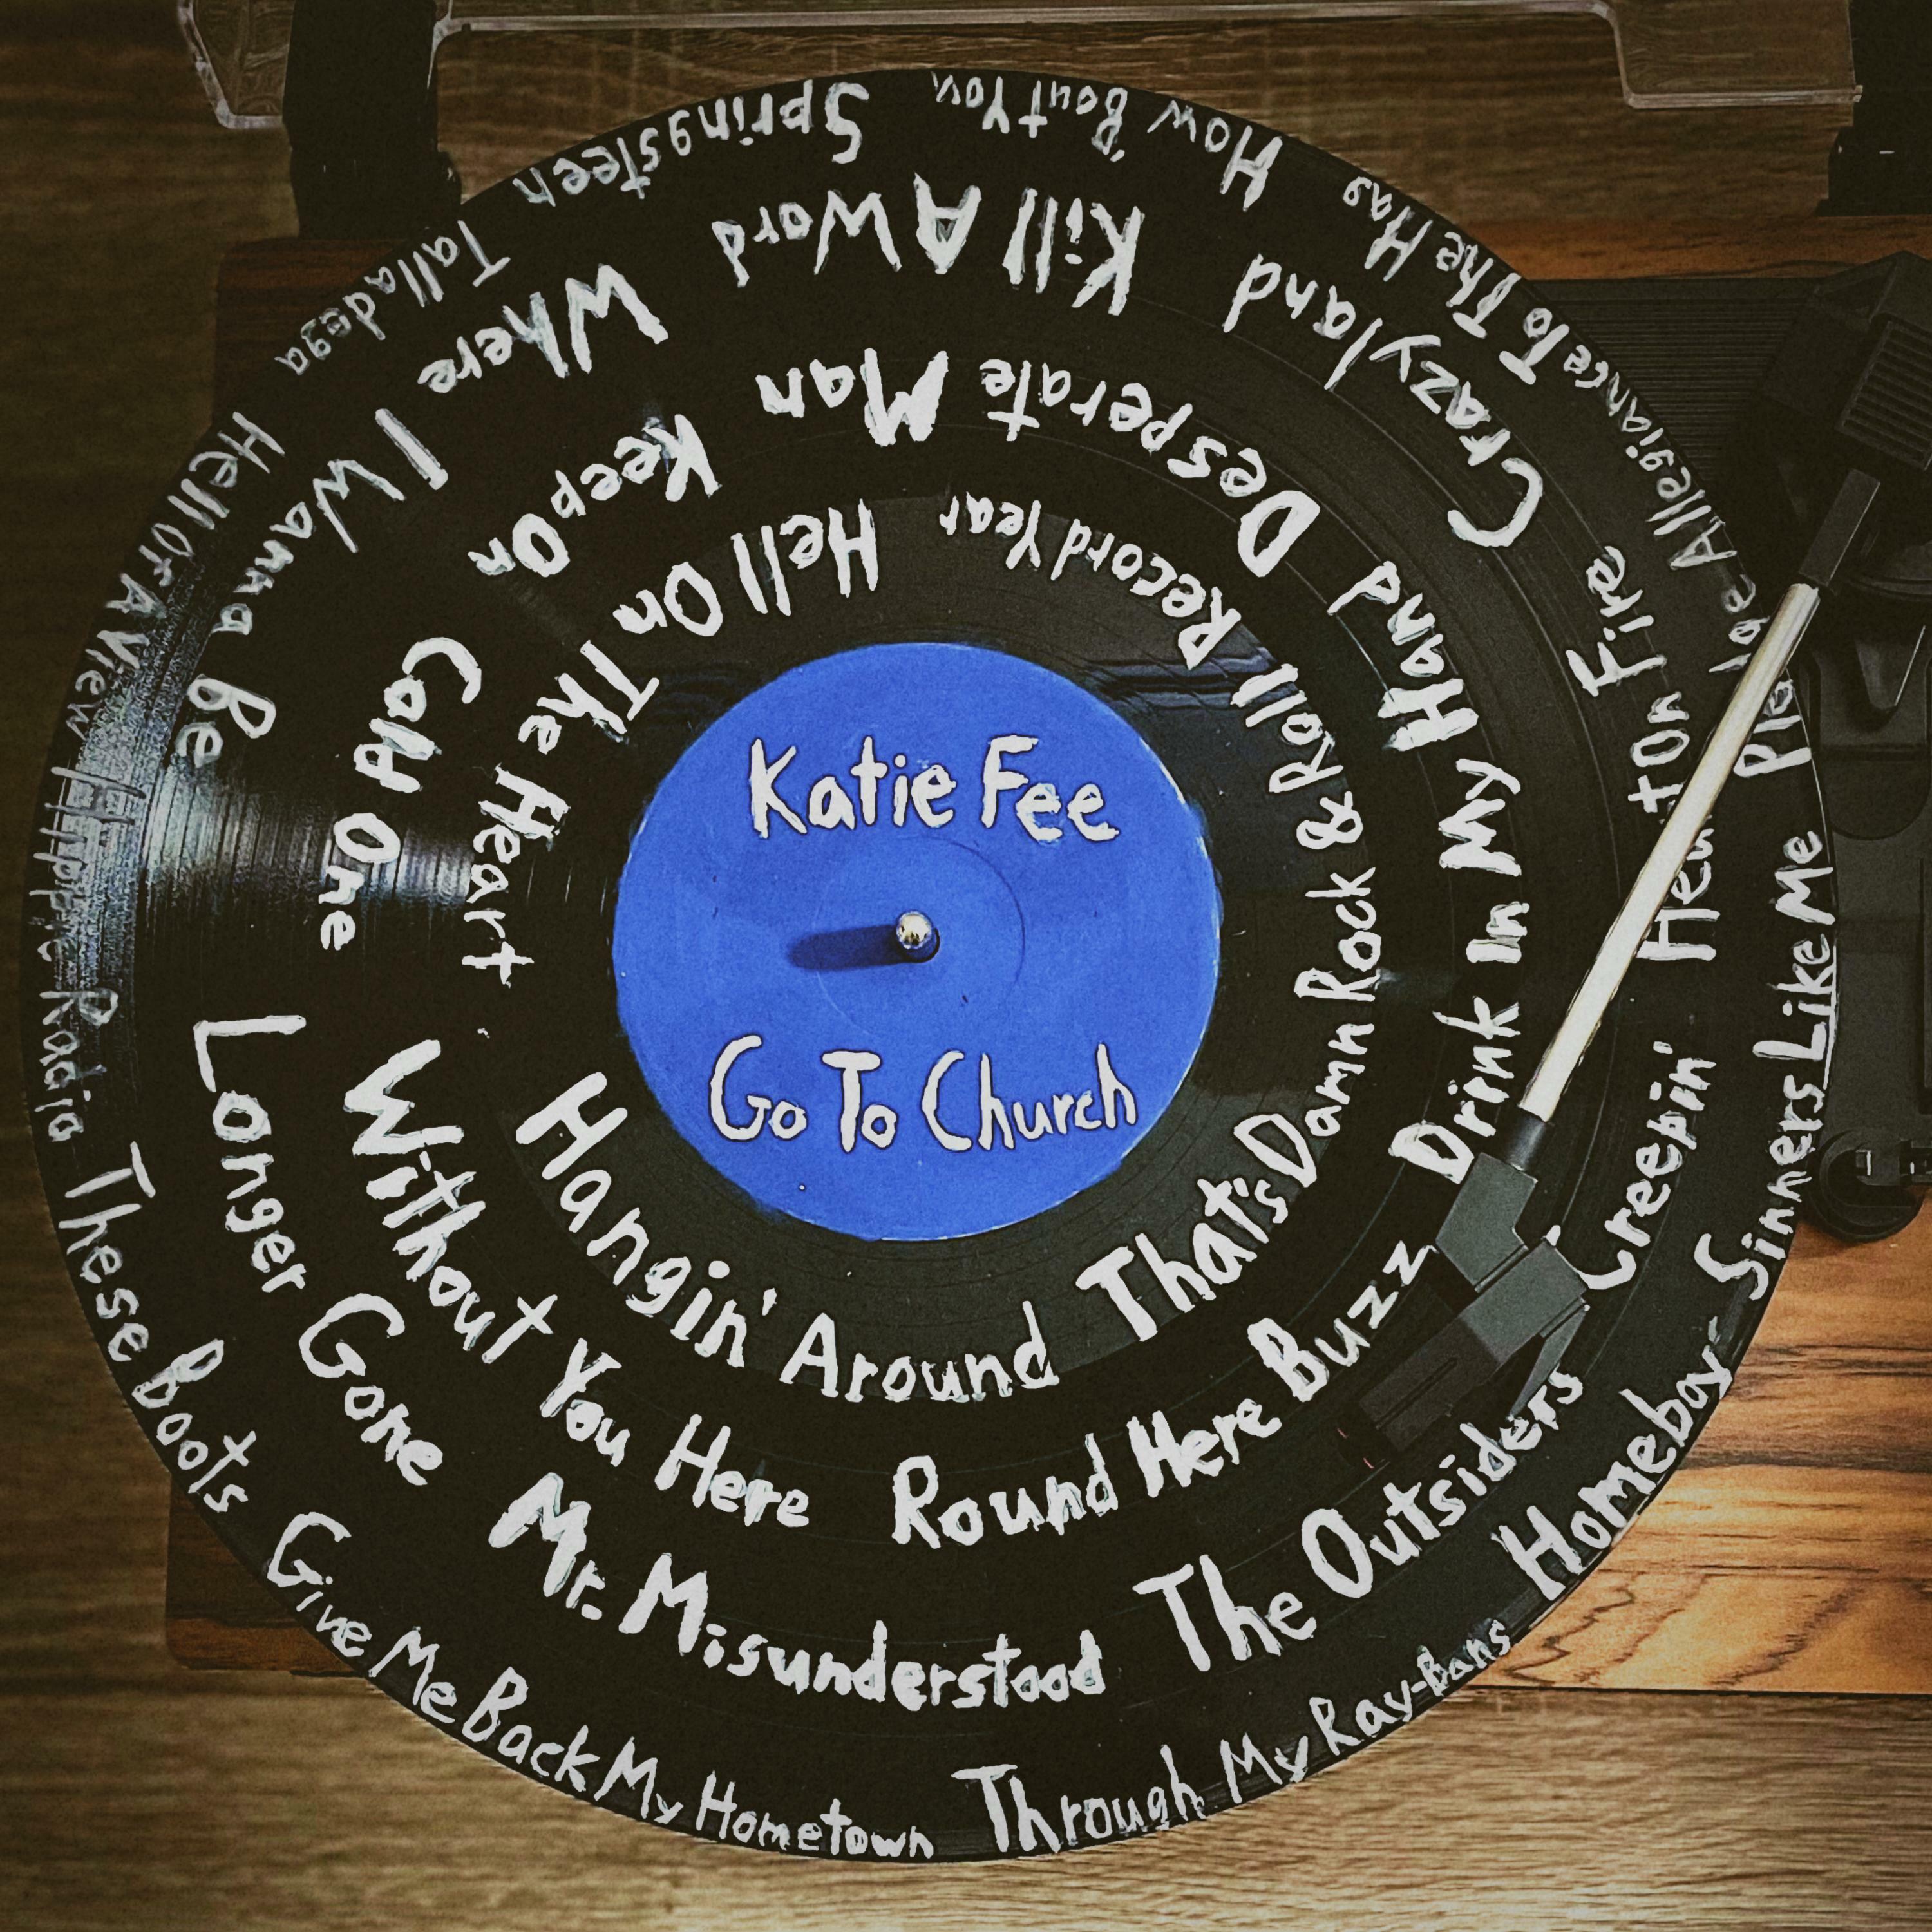 Katie Fee
Go To Church
Hangin' Around
That's Damn Rock & Roll
Record Year
Hell On The Heart
Without You Here
Round Here Buzz
Drink In My Hand
Desperate Man
Keep On
Cold One
Longer Gone
Mr. Misunderstood
The Outsiders
Creepin'
Heart On Fire
Crazyland
Kill A Word
Where I Wanna Be
These Boots
Give Me Back My Hometown
Through My Ray-Bans
Homeboy
Sinners Like Me
Pledge Allegiance To The Hag
How 'Bout You
Springsteen
Talladega
Hell Or A View
Hippie Radio